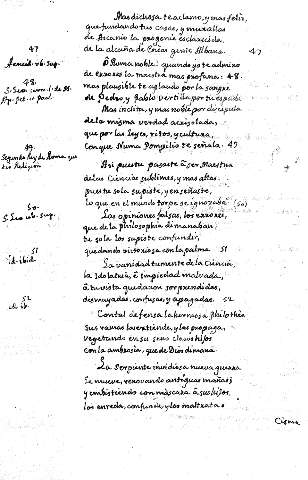 Mas dichosa te aclamo, y mas feliz,
que fundando tus casas, y murallas
de Ascanio la progenie esclarecida
de la alcuña de Eneas genie Albana. 47
47
Aeneid. ub. sup.
O Roma noble! quando yo te admiro
de errores la maestra mas profana: 48.
48.
mas plausible te aplaudo por la sangre
de Pedro, y Pablo vertida por tu espada
Mas inclita, y mas noble por discipula
de la misma verdad acrisolada,
que por las leyes, ritos, y cultura,
con que Numa Pompilio te señala. 49
49.
Segunda ley de Roma, que
dio Religion
Assi pueste pasaste à ser Maestra
de las Ciencias sublimes, y mas altas
puesto solo supiste, y enseñaste,
lo que en el mundo torpe se ignoraba 50
50.
S. Leo ub. sup.
Las opiniones falsas, los errores,
que de la philosophia dimanaban
tu sola los supiste confundir,
quedando victoriosa con la palma 51
51
id. ibid.
La vanidad tumente de la Ciencia,
la Idolatria, è impiedad malvada,
à tu vista quedaron sorprendidas,
desmayadas, confusas, y apagadas. 52
52
id. ib.
Con tal defensa la hermosa Philothea
sus ramas la extiende, y las propaga,
vegetando en su seno claros hijos
con la ambrosia, que de Dios dimana.
La serpiente invidiosa nueva guerra
le mueve, renovando antiguas mañas;
y embistiendo con mascara à sus hijos,
los enreda, confunde, y los maltrata.
Cisma